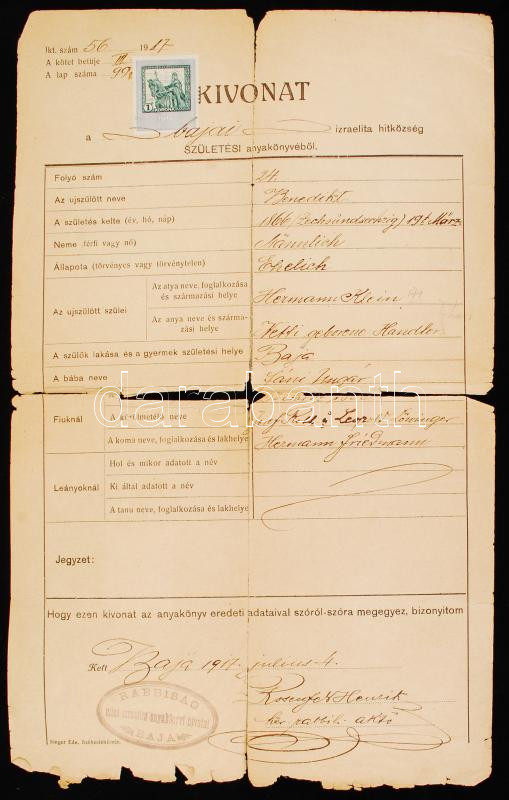 Ikt. szám 56 1917
A kötet betüje III
A lap száma 99
1
1914
KIVONAT
a bajai izraelita hitközség
SZÜLETÉSI anyakönyvéből.
Folyó szám 24.
Az ujszülött neve Benedikt
A születés kelte (év, hó, nap) 1866 (Sechsundsechzig) 19t März
Neme (férfi vagy nő) Männlich
Állapota (törvényes vagy törvénytelen) Ehelich
Az ujszülött szülei
Az atya neve, foglalkozása
és származási helye Hermann Klein
Az anya neve és szárma-
zási helye Netti geborene Handler
A szülők lakása és a gyermek születési helye Baja
A bába neve Ungár
Fiuknál
A körülmetélő neve Josef Leopold Löwinger
A koma neve, foglalkozása és lakhelye Hermann Friedmann
Leányoknál
Hol és mikor adatott a név
Ki által adatott a név
A tanu neve, foglalkozása és lakhelye
Jegyzet:
Hogy ezen kivonat az anyakönyv eredeti adataival szóról-szóra megegyez, bizonyitom
Kelt Baja 1917. julius 4.
Rosenfeld Henrik
ker. rabbi
RABBISÁG
anyakönyvi hivatal
BAJA
darabanth
.com